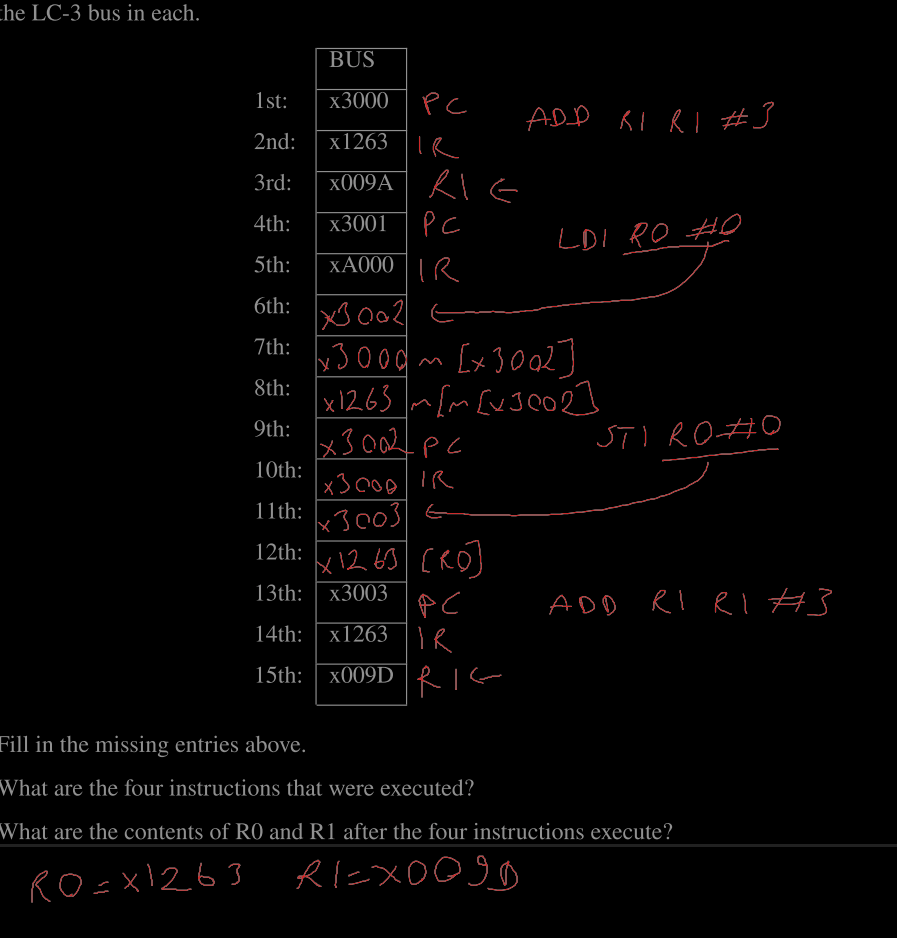 the LC-3 bus in each.
BUS
1st: x3000 PC ADD R1 R1 #3
2nd: x1263 IR
3rd: x009A R1 ←
4th: x3001 PC LDI R0 #0
5th: xA000 IR
6th: x3002 ←
7th: x3000 m[x3002]
8th: x1263 m[m[x3002]]
9th: x3002 PC STI R0 #0
10th: x3000 IR
11th: x3003 ←
12th: x1263 [R0]
13th: x3003 PC ADD R1 R1 #3
14th: x1263 IR
15th: x009D R1 ←
Fill in the missing entries above.
What are the four instructions that were executed?
What are the contents of R0 and R1 after the four instructions execute?
R0=x1263 R1=x009D